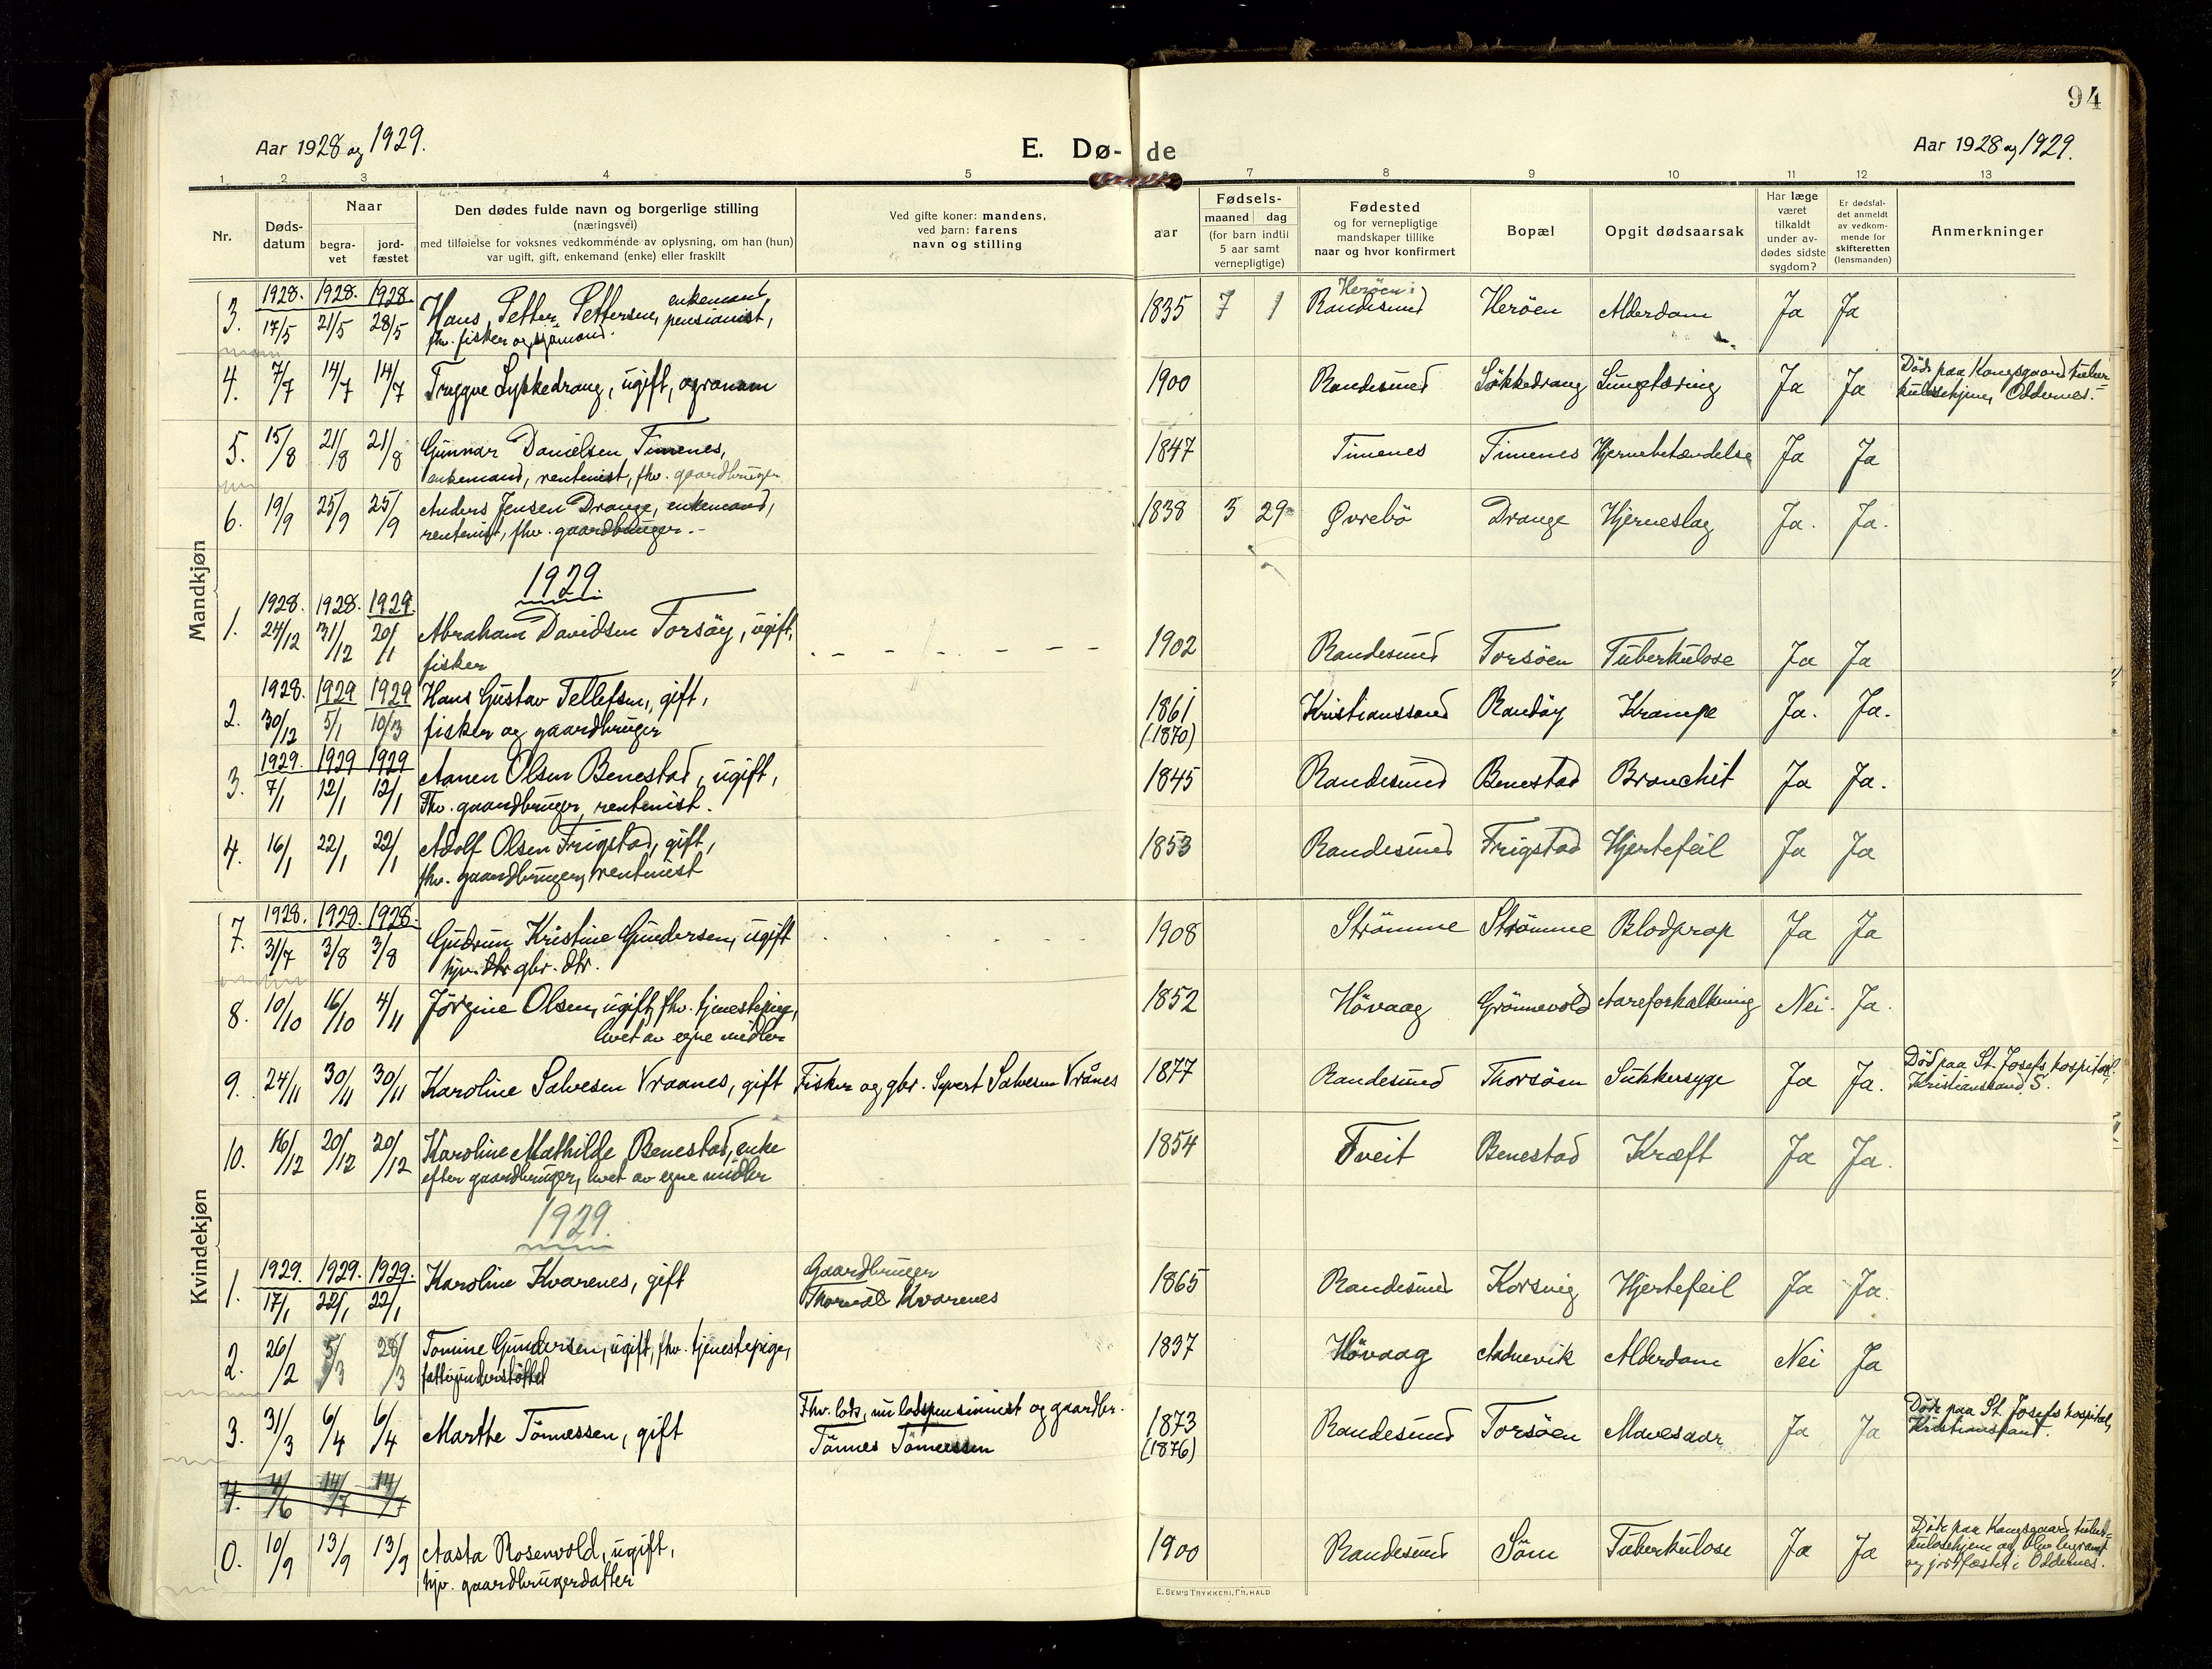 94
Aar 1928 og 1929.
E. Dø- de
Aar 1928 og 1929.
1 2 3 4 5 7 8 9 10 11 12 13
Nr. Døds-datum Naar begra-vet jord-fæstet Den dødes fulde navn og borgerlige stilling (næringsvei) med tilføielse for voksnes vedkommende av oplysning, om han (hun) var ugift, gift, enkemand (enke) eller fraskilt Ved gifte koner: mandens, ved barn: farens navn og stilling Fødsels- aar maaned dag (for barn indtil 5 aar samt vernepligtige) Fødested og for vernepligtige mandskaper tillike naar og hvor konfirmert Bopæl Opgit dødsaarsak Har læge været tilkaldt under av-dødes sidste sygdom? Er dødsfal-det anmeldt av vedkom-mende for skifteretten (lensmanden) Anmerkninger
Mandkjøn
3. 1928. 17/5 1928. 21/5 1928 28/5 Hans Petter Pettersen, enkemand, pensionist, fhv. fisker og sjömand. 1835 7 1 Heröen i Randesund Heröen Alderdom Ja Ja
4. 7/7 14/7 14/7 Trygve Lykkedrang, ugift, agronom 1900 Randesund Lökkedrang Lungetæring Ja Ja Döde paa Kongsgaard tuber-kulosehjem, Oddernes.
5. 15/8 21/8 21/8 Gunnar Danielsen Timenes, enkemand, rentenist, fhv. gaardbruger 1847 Timenes Timenes Hjernebetændelse Ja Ja
6. 19/9 25/9 25/9 Anders Jensen Drange, enkemand, rentenist, fhv. gaardbruger. 1838 3 29 Øvrebö Drange Hjerneslag Ja. Ja.
1929.
1. 1928. 24/12 1928. 31/12 1929. 20/1 Abraham Davidsen Torsöy, ugift, fisker 1902 Randesund Torsöen Tuberkulose Ja Ja
2. 1928. 30/12 1929 5/1 1929 10/3 Hans Gustav Tellefsen, gift, fisker og gaardbruger 1861 (1870) Kristianssand Randöy Krampe Ja. Ja.
3. 1929. 7/1 1929 12/1 1929 12/1 Aanen Olsen Benestad, ugift, Fhv. gaardbruger, rentenist. 1845 Randesund Benestad Bronchit Ja Ja.
4. 16/1 22/1 22/1 Adolf Olsen Frigstad, gift, fhv. gaardbruger, rentenist 1853 Randesund Frigstad Hjertefeil Ja Ja
Kvindekjøn
7. 1928. 31/7 1928. 3/8 1928. 3/8 Gudrun Kristine Gundersen, ugift hjv. dtr gbr. dtr. 1908 Strömme Strömme Blodprop Ja Ja
8. 10/10 16/10 4/11 Jörgine Olsen, ugift, fhv. tjenestepige, levet av egne midler 1852 Hövaag Grönnevold Aareforkalkning Nei. Ja.
9. 24/11 30/11 30/11 Karoline Salvesen Vraanes, gift Fisker og gbr. Syvert Salvesen Vrånes 1877 Randesund Thorsöen Sukkersyge Ja Ja. Död paa St. Josefs hospital, Kristianssand S.
10. 16/12 20/12 20/12 Karoline Mathilde Benestad, enke efter gaardbruger, levet av egne midler 1854 Tveit Benestad Kræft Ja Ja.
1929.
1. 1929. 17/1 1929. 22/1 1929. 22/1 Karoline Kvarenes, gift Gaardbruger Thorvald Kvarenes 1865 Randesund Korsvig Hjertefeil Ja Ja.
2. 26/2 5/3 28/3 Tomine Gundersen, ugift, fhv. tjenestepige, fattigunderstöttet 1837 Hövaag Aadnevik Alderdom Nei Ja
3. 31/3 6/4 6/4 Marthe Tönnessen, gift Fhv. lods, nu lodspensionist og gaardbr. Tönnes Tönnessen 1873 (1876) Randesund Torsöen Mavesaar Ja Ja Döde paa St. Josefs hospital, Kristianssand.
4. 4/6 14/7 14/7
0. 10/9 13/9 13/9 Aasta Rosenvold, ugift, hjv. gaardbrugerdatter 1900 Randesund Söm Tuberkulose Ja Ja Döde paa Kongsgaard tuber-kulosehjem og blev begravet og jordfæstet i Oddernes.
E. SEM'S TRYKKERI, FR.HALD